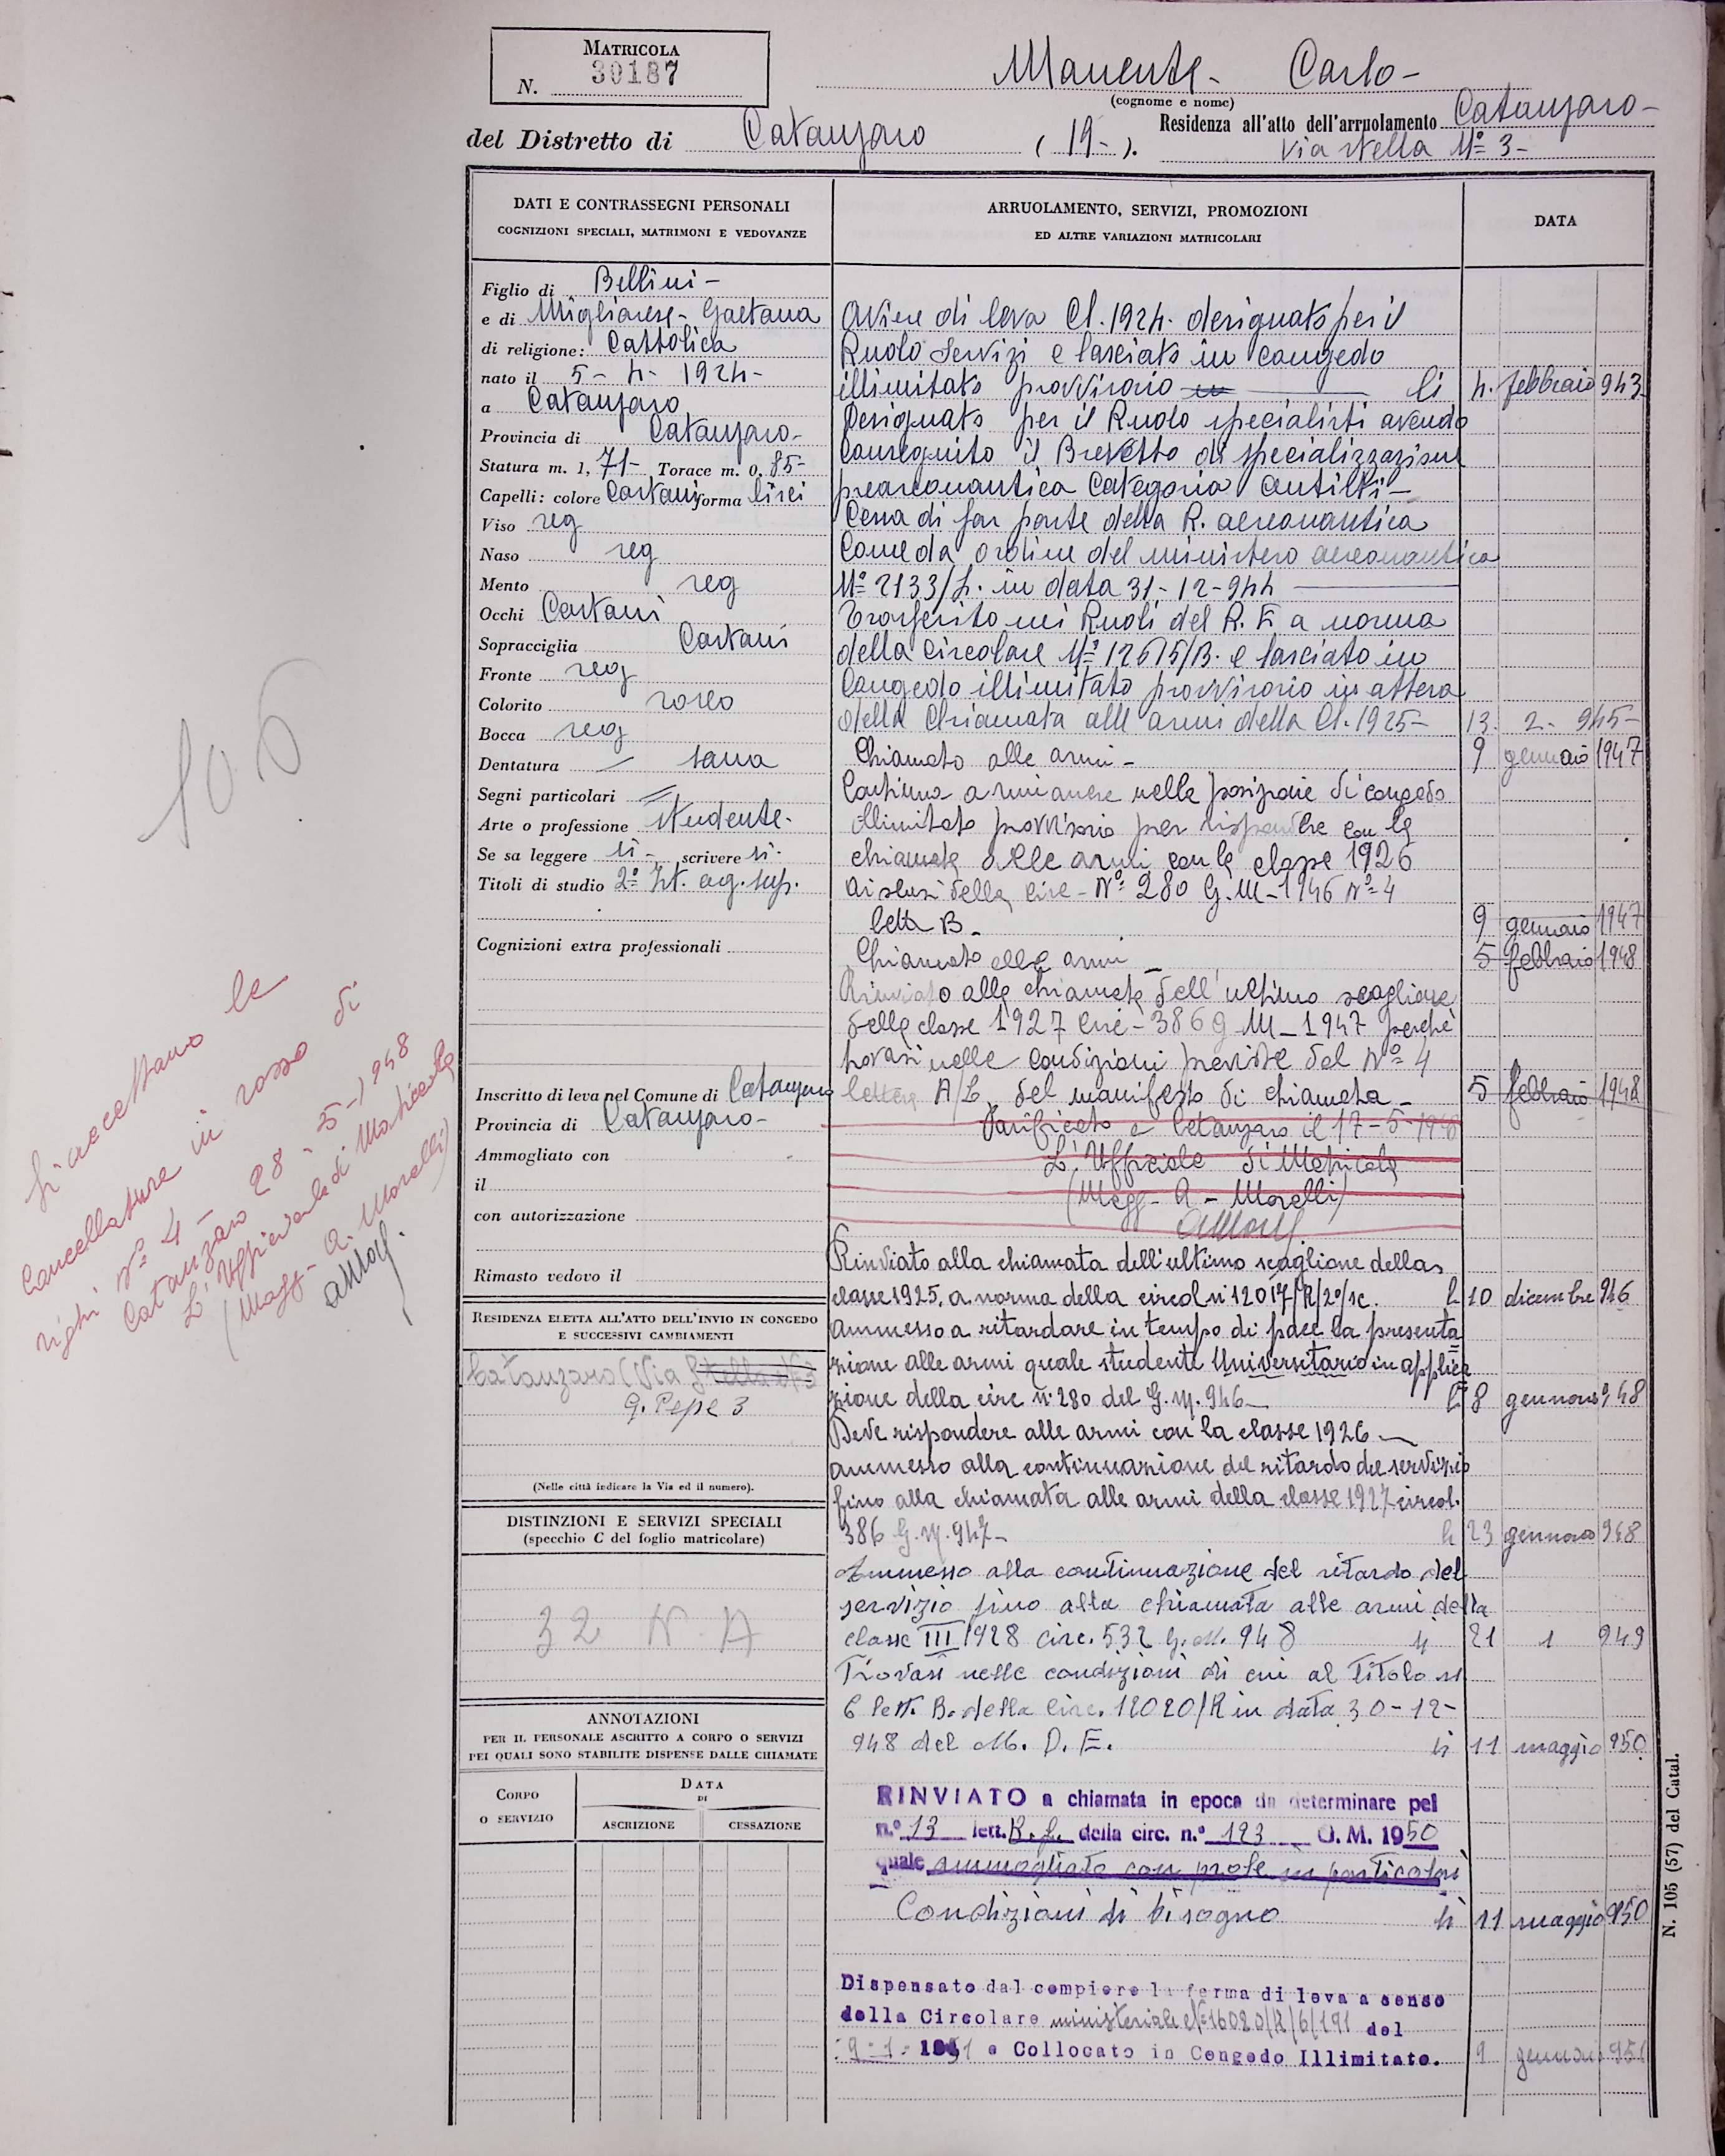 MATRICOLA
N. 30187
Manente - Carlo -
(cognome e nome)
del Distretto di Catanzaro (19-).
Residenza all'atto dell'arruolamento Catanzaro -
Via Stella Nº 3 -
DATI E CONTRASSEGNI PERSONALI
COGNIZIONI SPECIALI, MATRIMONI E VEDOVANZE
Figlio di Bellini -
e di Migliarese - Gaetana
di religione: Cattolica
nato il 5 - 4 - 1924 -
a Catanzaro
Provincia di Catanzaro -
Statura m. 1, 71 - Torace m. 0, 85 -
Capelli: colore Castani forma lisci
Viso reg
Naso reg
Mento reg
Occhi Castani
Sopracciglia Castani
Fronte reg
Colorito roseo
Bocca reg
Dentatura sana
Segni particolari
Arte o professione studente -
Se sa leggere si - scrivere si -
Titoli di studio 2º Ist. ag. sup.
Cognizioni extra professionali
Inscritto di leva nel Comune di Catanzaro
Provincia di Catanzaro -
Ammogliato con
il
con autorizzazione
Rimasto vedovo il
RESIDENZA ELETTA ALL'ATTO DELL'INVIO IN CONGEDO
E SUCCESSIVI CAMBIAMENTI
Catanzaro (Via Stella Nº 3
G. Pepe 3
(Nelle città indicare la Via ed il numero).
DISTINZIONI E SERVIZI SPECIALI
(specchio C del foglio matricolare)
32 N. A
ANNOTAZIONI
PER IL PERSONALE ASCRITTO A CORPO O SERVIZI
PEI QUALI SONO STABILITE DISPENSE DALLE CHIAMATE
CORPO
O SERVIZIO
DATA
DI
ASCRIZIONE
CESSAZIONE
ARRUOLAMENTO, SERVIZI, PROMOZIONI
ED ALTRE VARIAZIONI MATRICOLARI
DATA
Aviere di leva Cl. 1924. designato per il
Ruolo Servizi e lasciato in congedo
illimitato provvisorio li 4. febbraio 943
Designato per il Ruolo specialisti avendo
Conseguito il Brevetto di specializzazione
preareonautica Categoria
Cessa di far parte della R. aereonautica
Come da ordine del ministero aereonautica
Nº 2133/L. in data 31 - 12 - 944
Trasferito nei Ruoli del R. E a norma
della Circolare Nº 12615/B. e lasciato in
Congedo illimitato provvisorio in attesa
della Chiamata alle armi della Cl. 1925 - 13 2 - 945 -
Chiamato alle armi - 9 gennaio 1947
Continua a rimanere nella posizione di congedo
illimitato provvisorio per rispondere con la
chiamata alle armi con la classe 1926
ai sensi della circ - Nº 280 G. M - 1946 Nº 4
lett B - 9 gennaio 1947
Chiamato alle armi 5 febbraio 1948
Rinviato alla chiamata dell'ultimo scaglione
della classe 1927 Circ - 386 G M - 1947 perchè
trovasi nelle condizioni previste dal Nº 4
lettera A/L del manifesto di chiamata - 5 febbraio 1948
Parificato a Catanzaro il 17 - 5 - 1948
L'Ufficiale di Matricola
(Magg - A - Morelli)
Rinviato alla chiamata dell'ultimo scaglione della
classe 1925, a norma della circol nº 12017/R/2º/sc. li 10 dicembre 946
ammesso a ritardare in tempo di pace la presenta
zione alle armi quale studente Universitario in applica
zione della circ nº 280 del G. M. 946 - li 8 gennaio 948
Deve rispondere alle armi con la classe 1926 -
ammesso alla continuazione del ritardo del servizio
fino alla chiamata alle armi della classe 1927 circol.
386 G. M. 947 - li 23 gennaio 948
Ammesso alla continuazione del ritardo del
servizio fino alla chiamata alle armi della
classe III 1928 circ. 532 G. M. 948 li 21 1 949
Trovasi nelle condizioni di cui al Titolo n
6 lett. B. della Circ. 12020/R in data 30 - 12 -
948 del M. D. E. li 11 maggio 950
RINVIATO a chiamata in epoca da determinare pel
n.º 13 lett. R. f. della circ. n.º 123 G. M. 1950
quale ammogliato con prole in particolari
Condizioni di bisogno li 11 maggio 950
Dispensato dal compiere la ferma di leva a senso
della Circolare ministeriale Nº 16020/R/6/191 del
9 - 1 - 1951 e Collocato in Congedo Illimitato. 9 gennaio 951
N. 105 (57) del Catal.
106
Si accettano le
Cancellature in rosso di
righi Nº 4 -
Catanzaro 28 - 5 - 1948
L'Ufficiale di Matricola
(Magg - A. Morelli)